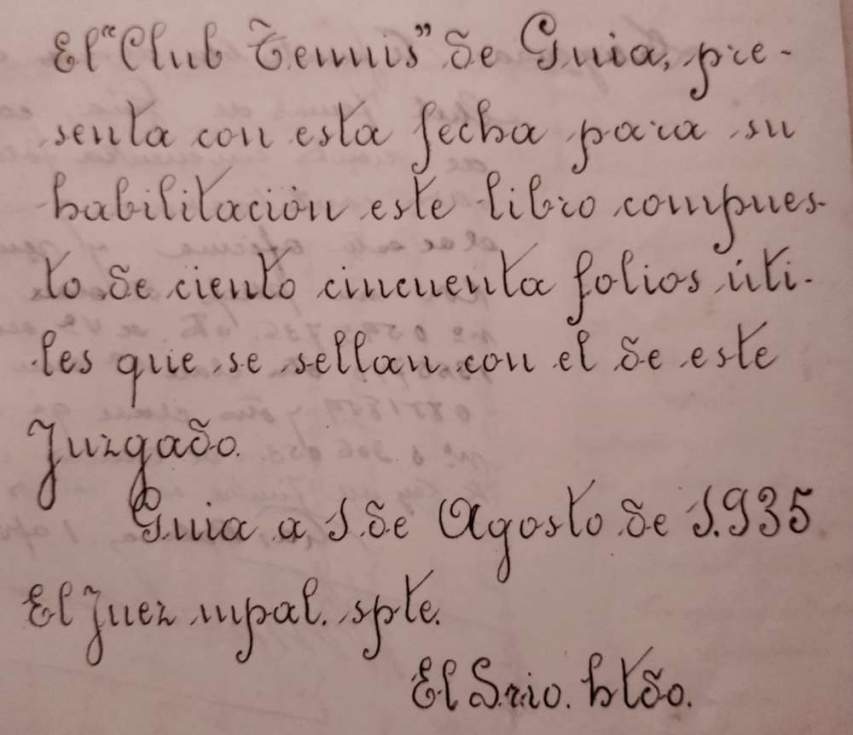 El "Club Tennis" de Guia, pre-
senta con esta fecha para su
habilitación este libro compues-
to de ciento cincuenta folios úti-
les que se sellan con el de este
Juzgado.
Guia a 1 de Agosto de 1.935
El Juez mpal. spte.
El Srio. htdo.